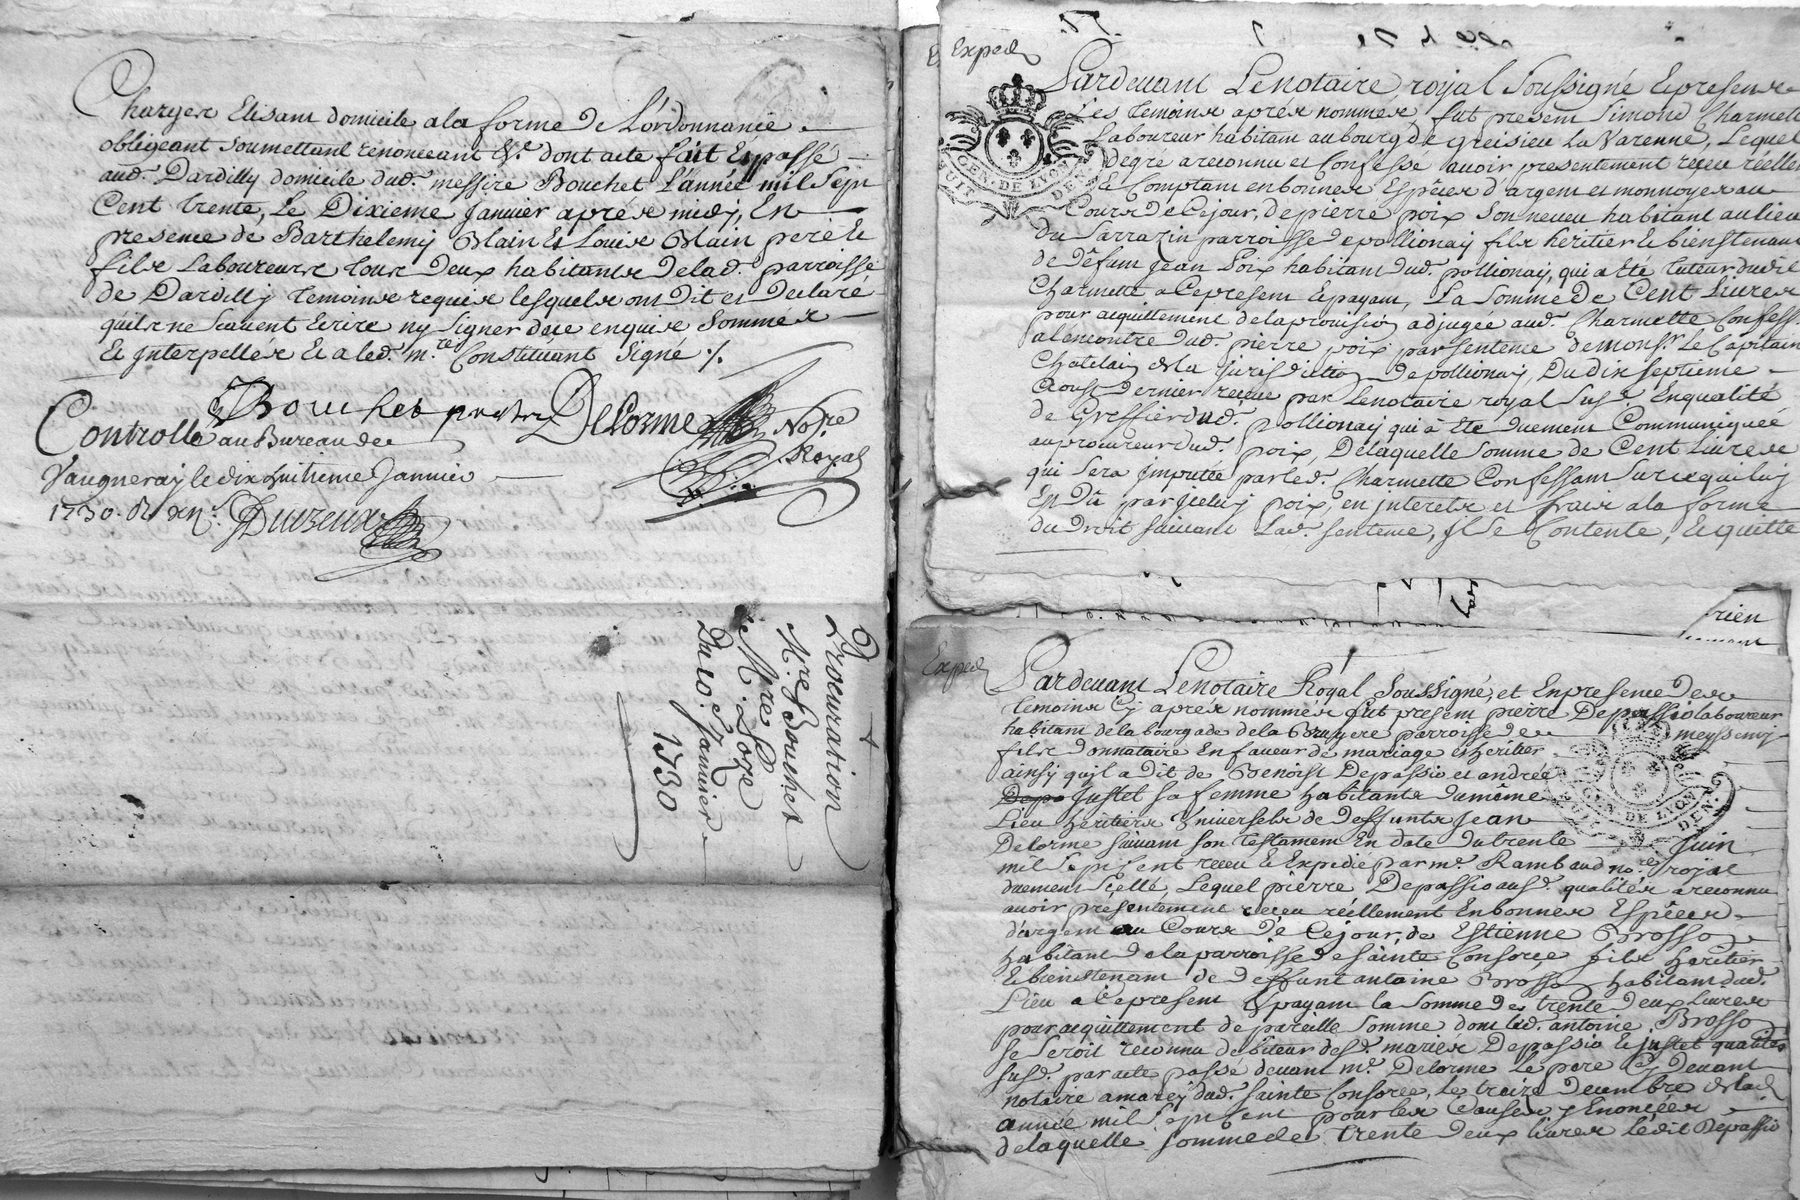 Charger Elisant domicile a la forme de L'ordonnance
obligeant soumettant renonceant &c. dont acte fait Et passé
aud. Dardilly domicile dud. messire Bouchet L'année mil sept
Cent trente, Le Dixieme Janvier aprés midy, En
presence de Barthelemy Blain Et Louis Blain pere Et
fils Laboureurs tous deux habitants de lad. parroisse
de Dardilly temoins requis lesquels ont dit et declaré
quils ne scavent Ecrire ny signer de ce enquis sommés
Et interpellés Et a led. mre Constituant signé ./.
Bouchet prestre DeLorme Nore Royal
Controllé au Bureau de
Vaugneray le dix huitieme Janvier
1730.
Procuration
Mre Bouchet
a Mre
Du 10. Janvier
1730
Exped
Pardevant Le notaire royal Soussigné Et presence
Les temoins aprés nommés fut present Simond Charmette
Laboureur habitant au bourg de Greisieu La Varenne, Lequel
de gré a reconnu et Confessé avoir presentement receu réellem
Et Comptant en bonnes Especes d'argent et monnoyes au
Cours de Cejour, de pierre poix son neveu habitant au lieu
du Sarrazin parroisse de pollionay fils héritier Et bienstenant
de defunt Jean Poix habitant dud. pollionay, qui a été tuteur dudit
Charmette a Ce present Et payant, La somme de Cent Livres
pour acquittement de la provision adjugée aud. Charmette Confess.
a l'encontre dud. pierre poix par sentence de monsr. Le Capitaine
Chatelain de la Jurisdiction de pollionay, Du dix septieme
Aoust dernier receue par Le notaire royal Susd. En qualité
de Greffier dud. pollionay qui a été duement Communiquée
au procureur dud. poix, De laquelle somme de Cent Livres
qui sera imputée par led. Charmette Confessant sur ce qui luy
Est Dû par Jceluy poix, en interets et frais a la forme
du Droit suivant Lad. sentence, Jl se Contente, Et quitte
rien
Exped
Pardevant Le notaire Royal Soussigné, et En presence des
temoins Cy aprés nommés fut present pierre Depassio laboureur
habitant de la bourgade de la Bruyere parroisse de meyssemy
fils donnataire En faveur de mariage Et heritier
ainsy qu'il a dit de Benoist Depassio et andrée
Depa Justet sa femme habitants du même
Lieu héritiers Universels de deffunts Jean
Delorme suivant son testament En date du trente Juin
mil sept Cent receu Et Expedié par me. Rambaud nore. royal
duement scellé, Lequel pierre Depassio ausd. qualités a reconnu
avoir présentement receu réellement En bonnes Espéces
d'argent au Cours de Cejour, de Estienne Brosso
habitant de la parroisse de Sainte Consorce fils Heritier
Et bienstenant de deffunt antoine Brosso habitant dud.
Lieu a Ce present Et payant la somme de trente deux livres
pour acquittement de pareille somme dont led. antoine Brosso
se seroit reconnu debiteur desd. mariés Depassio Et Justet qualités
susd. par acte passé devant me. Delorme Le pere Cy devant
notaire a marcy dud. Sainte Consorce, le treize decembre de lad.
année mil sept Cent pour les Causes y Enoncées
de laquelle somme de trente deux livres ledit Depassio